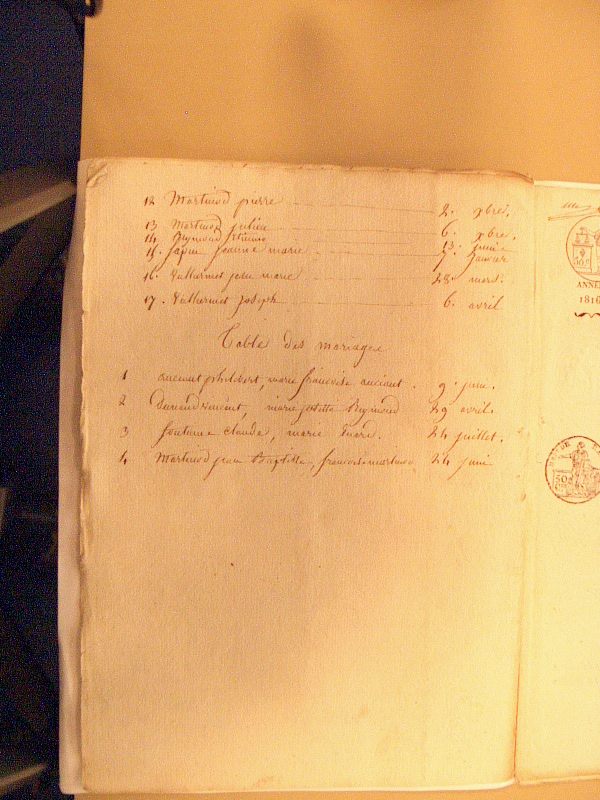 12 Martinod pierre 2. 9bre.
13 Martinod julien 6. 9bre.
14 Reymond 13. juin
15. jeanne marie 7. janvier
16. Vuthernet jean marie 28. mars.
17. Vuthernet joseph 6. avril
Table des mariages
1 philibert, marie françoise 9. juin.
2 Durand vincent, marie josette Reymond 29 avril.
3 fontaine claude, marie 24 juillet.
4 Martinod jean Baptiste, françoise martinod 24 juin
9
50 c
ANNÉE
1816
50